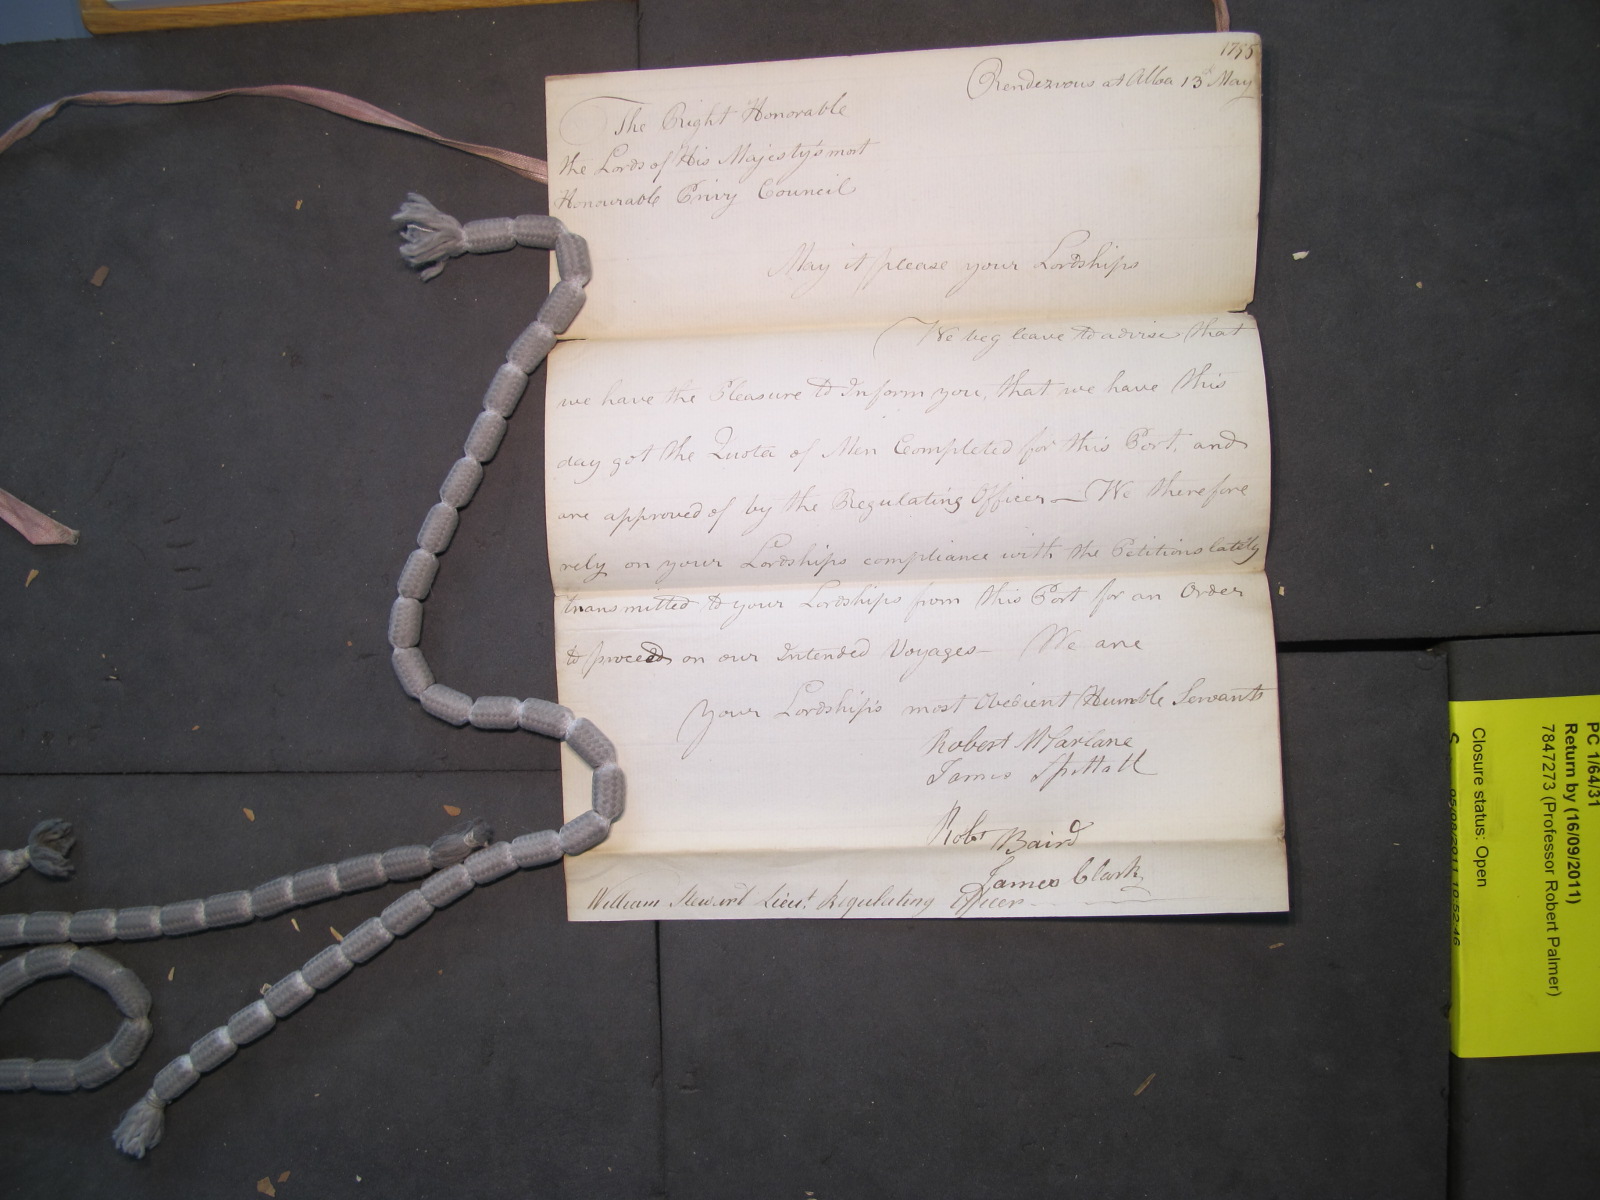 1795
Rendezvous at Alloa 13th May
The Right Honorable
the Lords of His Majesty's most
Honourable Privy Council
May it please your Lordships
We beg leave to advise that
we have the Pleasure to Inform you, that we have this
day got the Quota of Men Completed for this Port, and
are approved of by the Regulating Officer — We therefore
rely on your Lordships compliance with the Petitions lately
transmitted to your Lordships from this Port for an Order
to proceed on our Intended Voyages We are
Your Lordship's most Obedient Humble Servants
Robert McFarlane
James Spittall
Robt Baird
James Clark
William Stewart Lieut. Regulating Officer
PC 1/64/31
Return by (16/09/2011)
7847273 (Professor Robert Palmer)
Closure status: Open
10:52:46